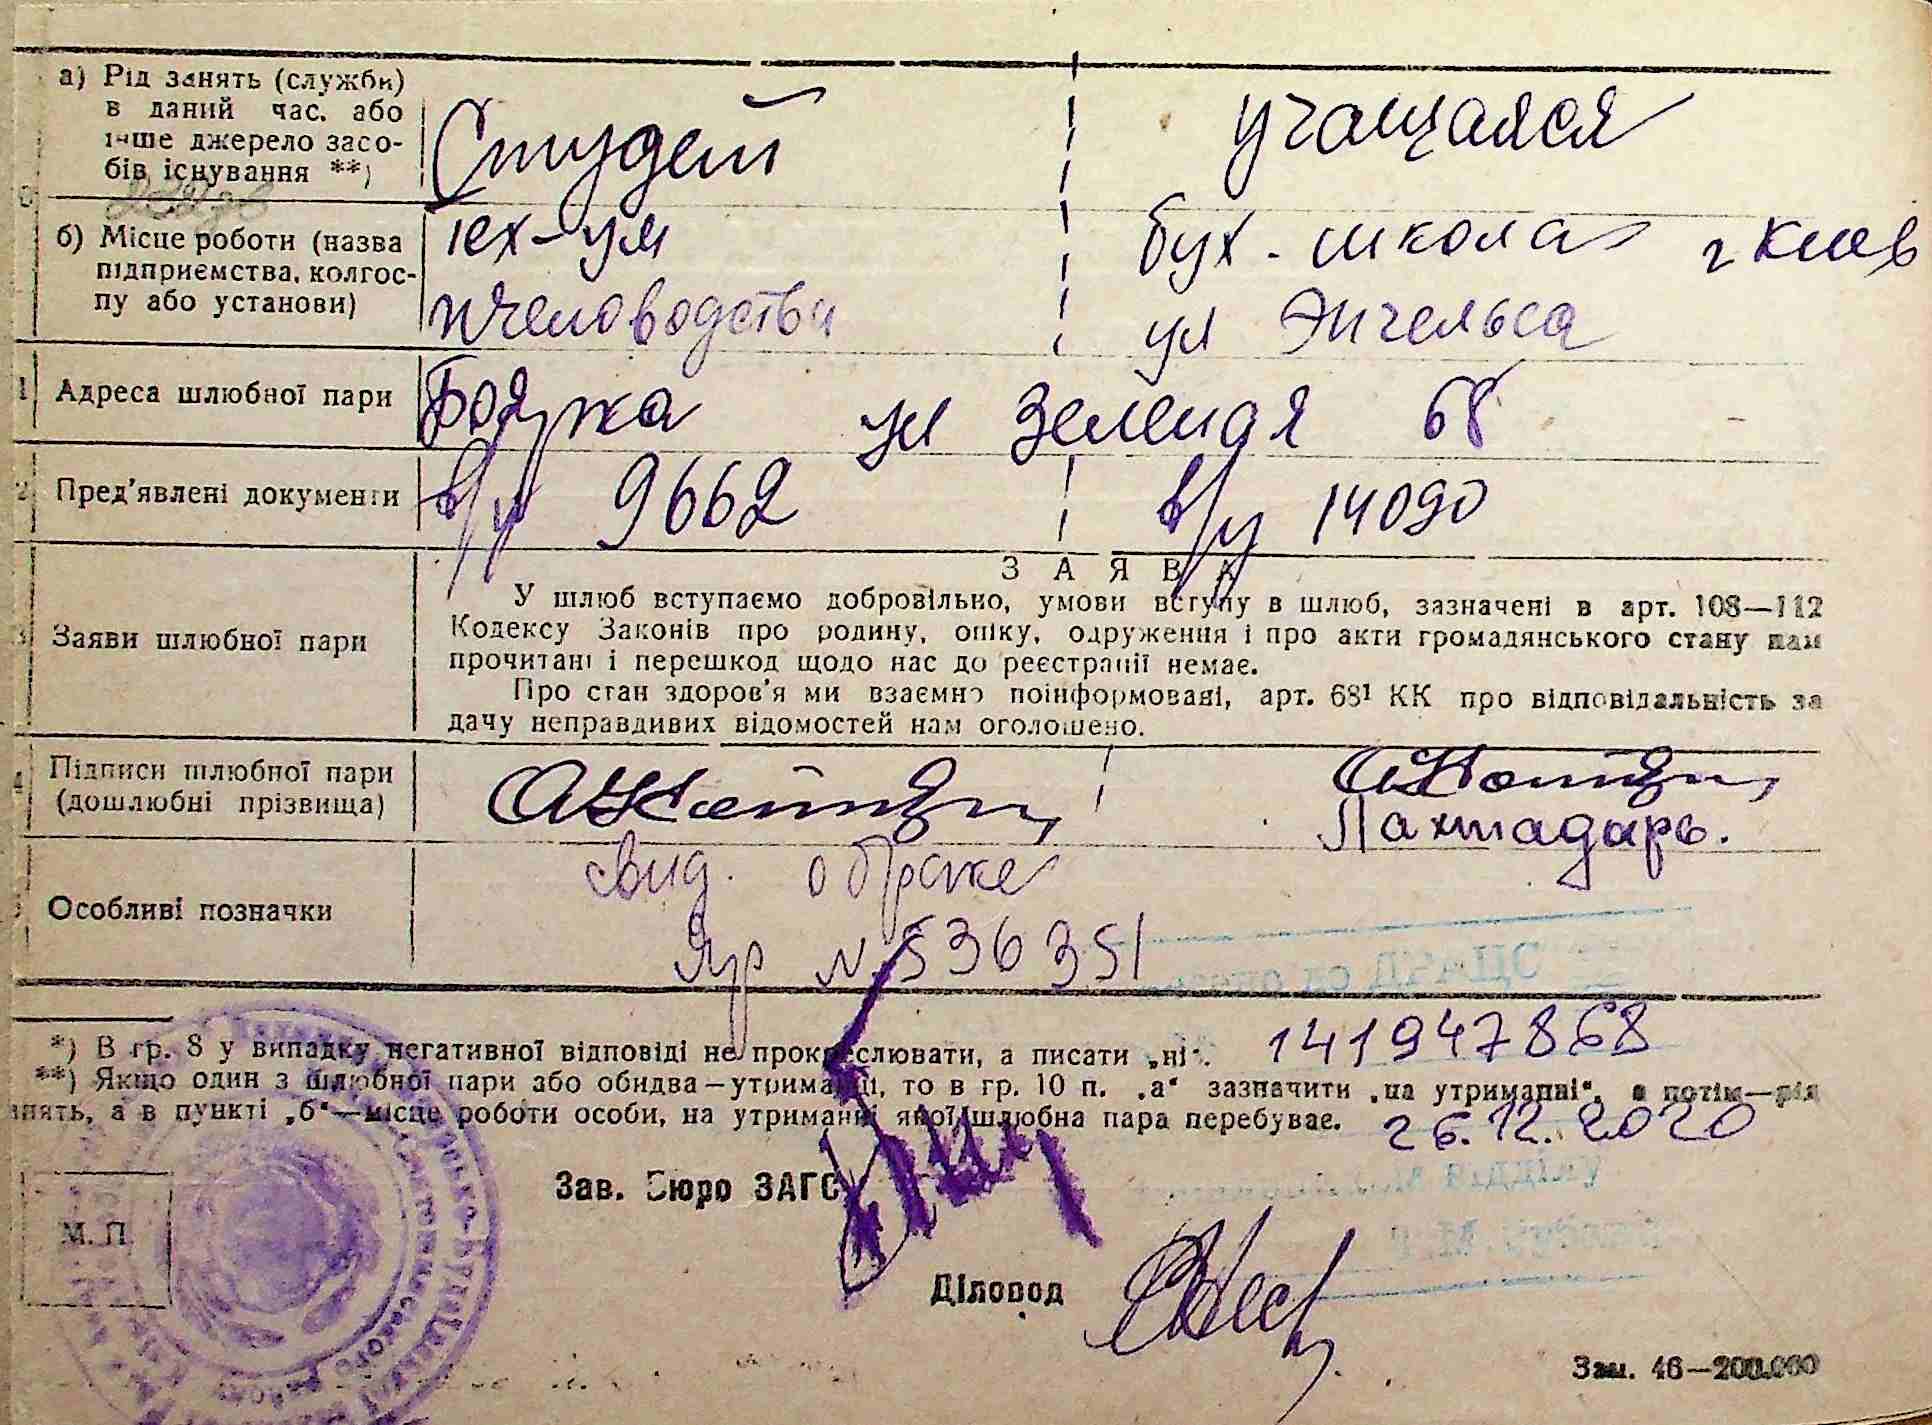 а) Рід занять (служби) в даний час. або інше джерело засобів існування **)
Студент
учащаяся
б) Місце роботи (назва підприємства, колгоспу або установи)
тех-ум
пчеловодства
бух. школа г Киев
ул Энгельса
1 Адреса шлюбної пари
Боярка ул Зеленая 68
2 Пред'явлені документи
в/у 9662
в/у 14090
3 Заяви шлюбної пари
ЗАЯВА
У шлюб вступаємо добровільно, умови вступу в шлюб, зазначені в арт. 108—112
Кодексу Законів про родину, опіку, одруження і про акти громадянського стану нам
прочитані і перешкод щодо нас до реєстрації немає.
Про стан здоров'я ми взаємно поінформовані, арт. 68¹ КК про відповідальність за
дачу неправдивих відомостей нам оголошено.
4 Підписи шлюбної пари
(дошлюбні прізвища)
Лахтадырь.
Особливі позначки
Свид. о браке
Яр № 536351
*) В гр. 8 у випадку негативної відповіді не прокреслювати, а писати „ні".
141947868
**) Якщо один з шлюбної пари або обидва—утриманці, то в гр. 10 п. „а" зазначити „на утриманні", а потім—рід
нять, а в пункті „б"—місце роботи особи, на утриманні якої шлюбна пара перебуває.
26.12.2020
Зав. Бюро ЗАГС
М. П.
Діловод
Зам. 46—200.000